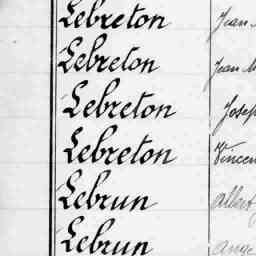 Lebreton Jean
Lebreton Jean M
Lebreton Josep
Lebreton Vincen
Lebrun Albert
Lebrun Ange